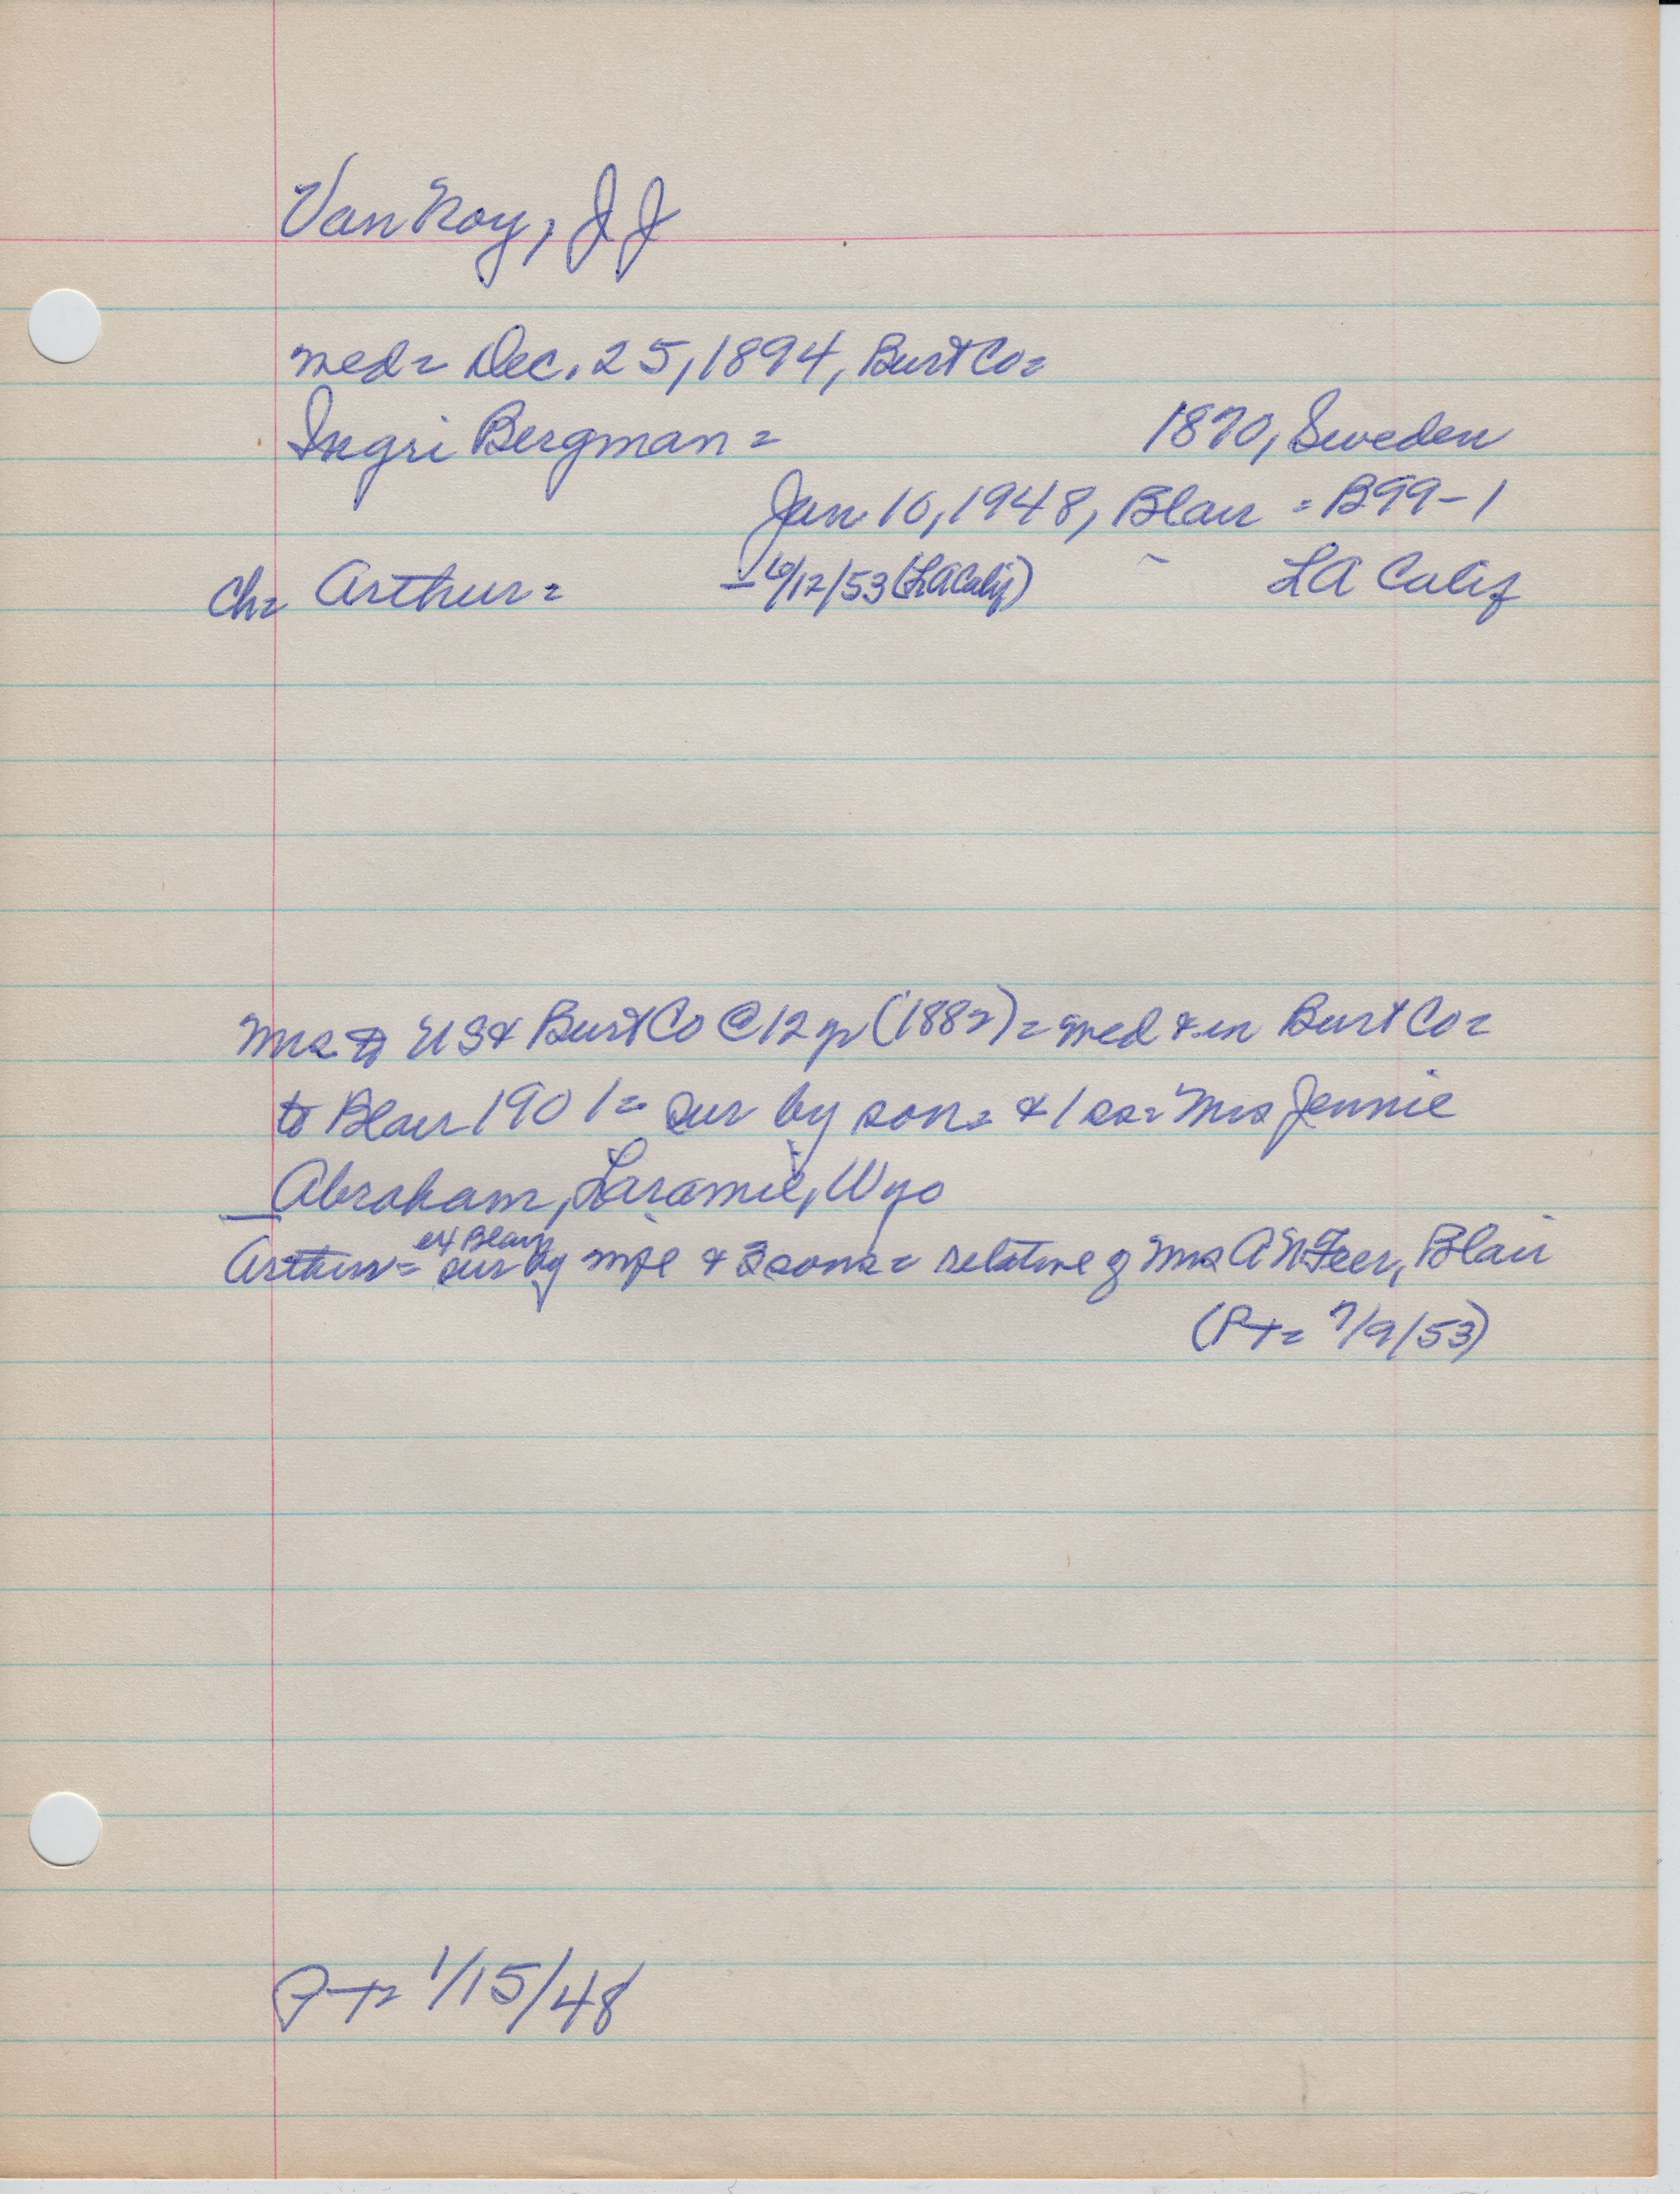 Van Noy, J J
med = Dec. 25, 1894, Burt Co =
Ingri Bergman = 1870, Sweden
Jan 10, 1948, Blair = B99-1
Ch = Arthur = - 6/12/53 (LA Calif) - LA Calif
Mrs to US & Burt Co @ 12 yr (1882) = med & in Burt Co =
to Blair 1901 = sur by son = & 1 ss = Mrs Jennie
Abraham, Laramie, Wyo
ex Blair
Arthur = sur by wife & 3 sons = relative of Mrs A N Feer, Blair
(PT = 7/9/53)
PT = 1/15/48